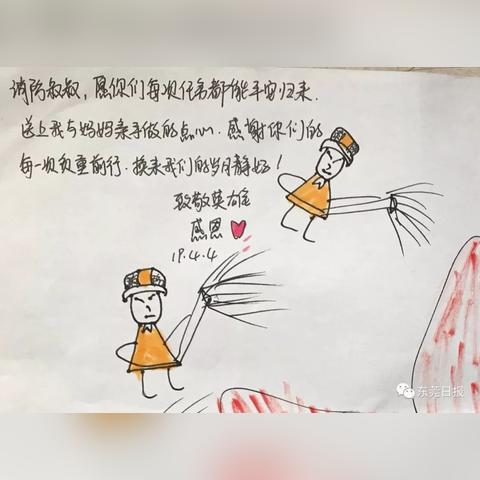 消防叔叔，愿你们每次任务都能平安归来.
送上我与妈妈亲手做的点心. 感谢你们的
每一次负重前行. 换来我们的岁月静好！
致敬英雄
感恩
19.4.4
东莞日报